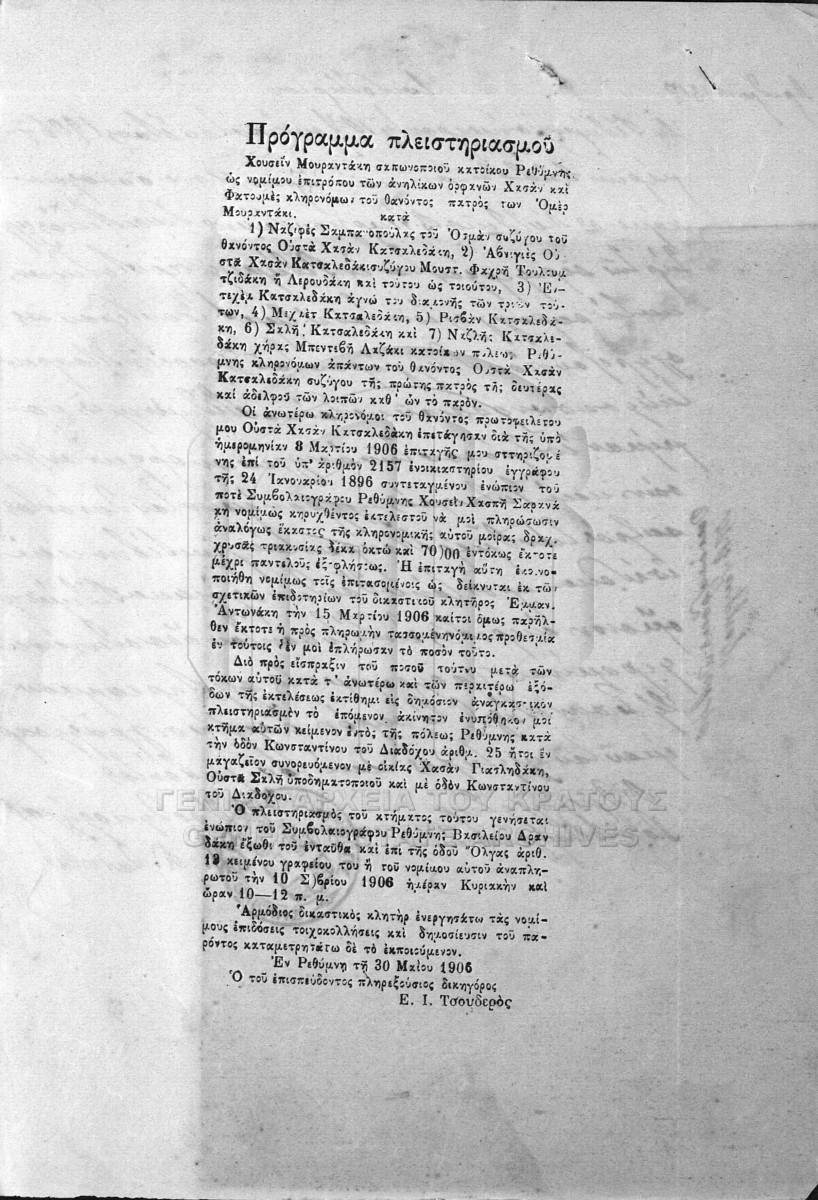 Πρόγραμμα πλειστηριασμοῦ
Χουσεΐν Μουραντάκη σαπωνοποιοῦ κατοίκου Ρεθύμνης
ὡς νομίμου ἐπιτρόπου τῶν ἀνηλίκων ὀρφανῶν Χασὰν καὶ
Φατουμὲς κληρονόμων τοῦ θανόντος πατρὸς των Ὀμὲρ
Μουραντάκι.
κατὰ
1) Ναζιφὲς Σαμπανοπούλας τοῦ Ὀσμὰν συζύγου τοῦ
θανόντος Οὐστὰ Χασὰν Κατσαλεδάκη, 2) Ἀβνιγιὲς Οὐ
στᾶ Χασὰν Κατσαλεδάκισυζύγου Μουστ. Φαχρῆ Τουλουμ
τζιδάκη ἢ Λερουδάκη καὶ τούτου ὡς τοιούτου, 3) Ἐν-
τεχὲμ Κατσαλεδάκη ἀγνώ του διαμονῆς τῶν τριῶν τού-
των, 4) Μεχμὲτ Κατσαλεδάκη, 5) Ριζβὰν Κατσαλεδά-
κη, 6) Σαλῆ Κατσαλεδάκη καὶ 7) Ναζλῆς Κατσαλε-
δάκη χήρας Μπεντεβῆ Λαζάκι κατοίκων πόλεως Ρεθύ-
μνης κληρονόμων ἁπάντων τοῦ θανόντος Οὐστὰ Χασὰν
Κατσαλεδάκη συζύγου τῆς πρώτης πατρὸς τῆς δευτέρας
καὶ ἀδελφοῦ τῶν λοιπῶν καθ' ὧν τὸ παρὸν.
Οἱ ἀνωτέρω κληρονόμοι τοῦ θανόντος πρωτοφειλέτου
μου Οὐστὰ Χασὰν Κατσαλεδάκη ἐπετάγησαν διὰ τῆς ὑπὸ
ἡμερομηνίαν 8 Μαρτίου 1906 ἐπιταγῆς μου στηριζομέ
νης ἐπὶ τοῦ ὑπ' ἀριθμὸν 2157 ἐνοικιαστηρίου ἐγγράφου
τῆς 24 Ἰανουαρίου 1896 συντεταγμένου ἐνώπιον τοῦ
ποτὲ Συμβολαιογράφου Ρεθύμνης Χουσεῒν Χασπῆ Σαρανά
κη νομίμως κηρυχθέντος ἐκτελεστοῦ νὰ μοὶ πληρώσωσιν
ἀναλόγως ἕκαστος τῆς κληρονομικῆς αὐτοῦ μοίρας δραχ.
χρυσᾶς τριακοσίας δέκα ὀκτὼ καὶ 70)00 ἐντόκως ἔκτοτε
μέχρι παντελοῦς ἐξοφλήσεως. Ἡ ἐπιταγὴ αὕτη ἐκοινο-
ποιήθη νομίμως τοῖς ἐπιτασομένοις ὡς δείκνυται ἐκ τῶν
σχετικῶν ἐπιδοτηρίων τοῦ δικαστικοῦ κλητῆρος Ἐμμαν.
Ἀντωνάκη τὴν 15 Μαρτίου 1906 καίτοι ὅμως παρῆλ-
θεν ἔκτοτε ἡ πρὸς πληρωμὴν τασσομένηνόμιμος προθεσμία
ἐν τούτοις δὲν μοὶ ἐπλήρωσαν τὸ ποσὸν τοῦτο.
Διὸ πρὸς εἴσπραξιν τοῦ ποσοῦ τούτου μετὰ τῶν
τόκων αὐτοῦ κατὰ τ' ἀνωτέρω καὶ τῶν περαιτέρω ἐξό-
δων τῆς ἐκτελέσεως ἐκτίθημι εἰς δημόσιον ἀναγκαστικὸν
πλειστηριασμὸν τὸ ἑπόμενον ἀκίνητον ἐνυπόθηκον μοὶ
κτῆμα αὐτῶν κείμενον ἐντὸς τῆς πόλεως Ρεθύμνης κατὰ
τὴν ὁδὸν Κωνσταντίνου τοῦ Διαδόχου ἀριθμ. 25 ἤτοι ἓν
μαγαζεῖον συνορευόμενον μὲ οἰκίας Χασὰν Γιαπληδάκη,
Οὐστᾶ Σαλῆ ὑποδηματοποιοῦ καὶ μὲ ὁδὸν Κωνσταντίνου
τοῦ Διαδόχου.
Ὁ πλειστηριασμὸς τοῦ κτήματος τούτου γενήσεται
ἐνώπιον τοῦ Συμβολαιογράφου Ρεθύμνης Βασιλείου Δραν
δάκη ἔξωθι τοῦ ἐνταῦθα καὶ ἐπὶ τῆς ὁδοῦ Ὄλγας ἀριθ.
12 κειμένου γραφείου του ἢ τοῦ νομίμου αὐτοῦ ἀναπλη-
ρωτοῦ τὴν 10 Σ)βρίου 1906 ἡμέραν Κυριακὴν καὶ
ὥραν 10—12 π. μ.
Ἁρμόδιος δικαστικὸς κλητὴρ ἐνεργησάτω τὰς νομί-
μους ἐπιδόσεις τοιχοκολλήσεις καὶ δημοσίευσιν τοῦ πα-
ρόντος καταμετρησάτω δὲ τὸ ἐκποιούμενον.
Ἐν Ρεθύμνῃ τῇ 30 Μαΐου 1906
Ὁ τοῦ ἐπισπεύδοντος πληρεξούσιος δικηγόρος
Ε. Ι. Τσουδερὸς
ΓΕΝΙΚΑ ΑΡΧΕΙΑ ΤΟΥ ΚΡΑΤΟΥΣ